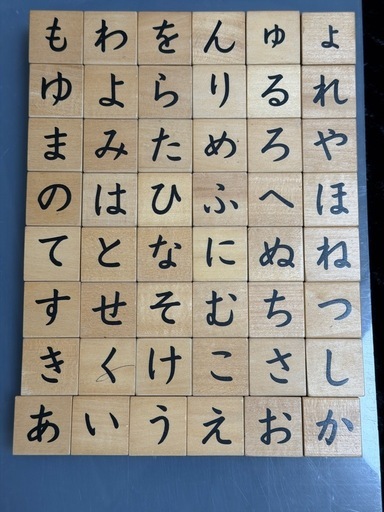 もわをんゅょ
ゆよらりるれ
まみためろや
のはひふへほ
てとなにぬね
すせそむちつ
きくけこさし
あいうえおか